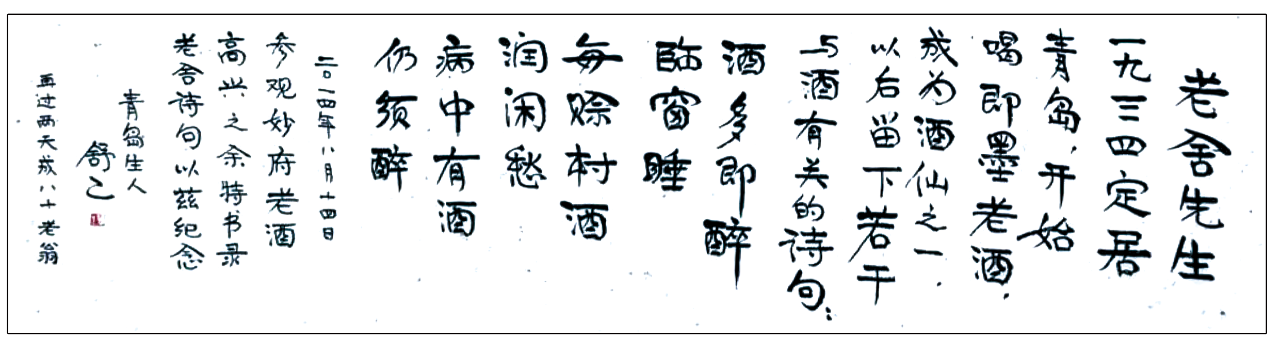 老舍先生
一九三四定居
青岛,开始
喝即墨老酒,
成为酒仙之一.
以后留下若干
与酒有关的诗句:
酒多即醉
临窗睡
每赊村酒
润闲愁
病中有酒
仍须醉
二〇一四年八月十四日
参观妙府老酒
高兴之余特书录
老舍诗句以兹纪念
青岛生人
舒乙
再过两天成八十老翁